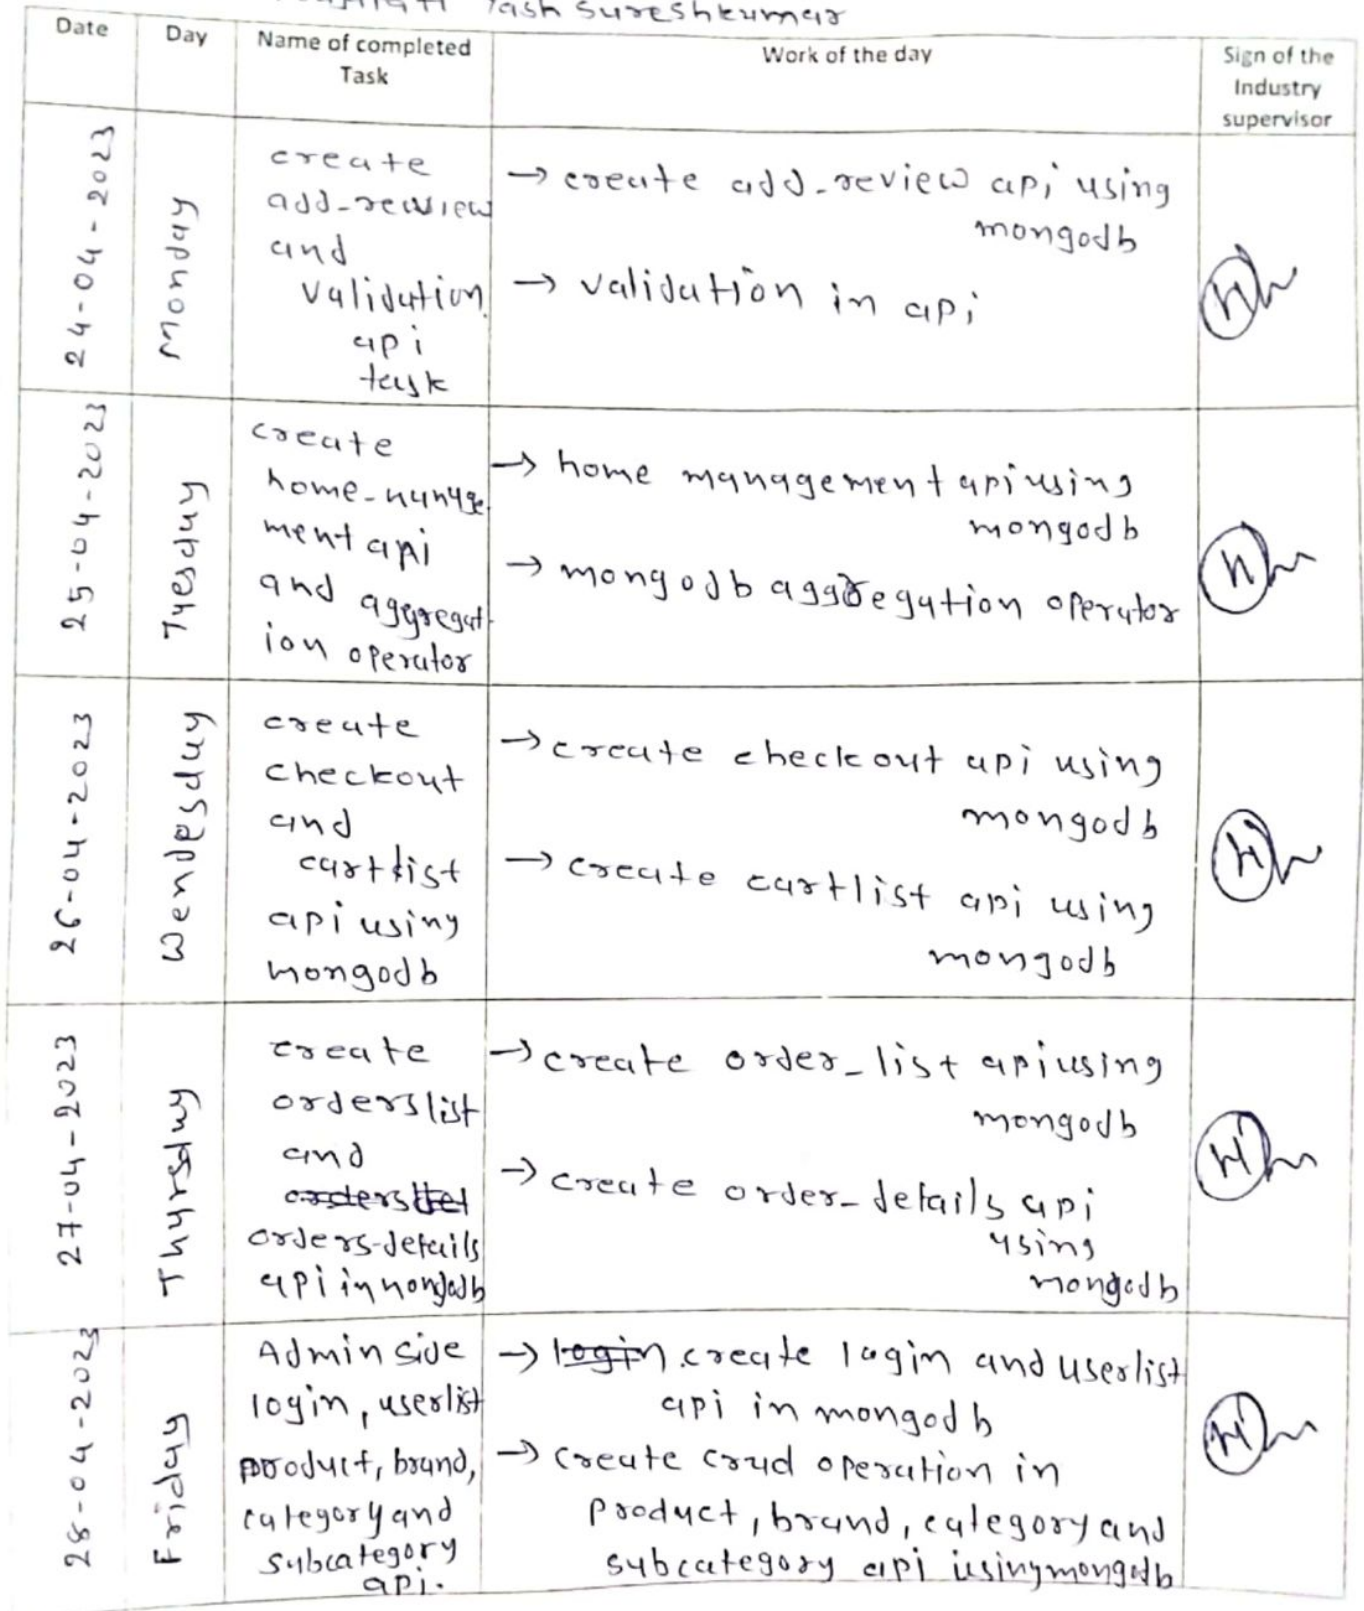 Yash Sureshkumar
Date
Day
Name of completed
Task
Work of the day
Sign of the
Industry
supervisor
24-04-2023
Monday
create
add-review
and
validation
api
task
→ create add-review api using
mongodb
→ validation in api
25-04-2023
Tuesday
create
home-manage
ment api
and aggregat
ion operator
→ home management api using
mongodb
→ mongodb aggregation operator
26-04-2023
Wendesday
create
checkout
and
cartlist
api using
mongodb
→ create checkout api using
mongodb
→ create cartlist api using
mongodb
27-04-2023
Thursday
create
orderslist
and
orders-details
api in mongodb
→ create order_list api using
mongodb
→ create order-details api
using
mongodb
28-04-2023
Friday
Admin side
login, userlist
product, brand,
category and
subcategory
api.
→ login create login and userlist
api in mongodb
→ create crud operation in
product, brand, category and
subcategory api using mongodb